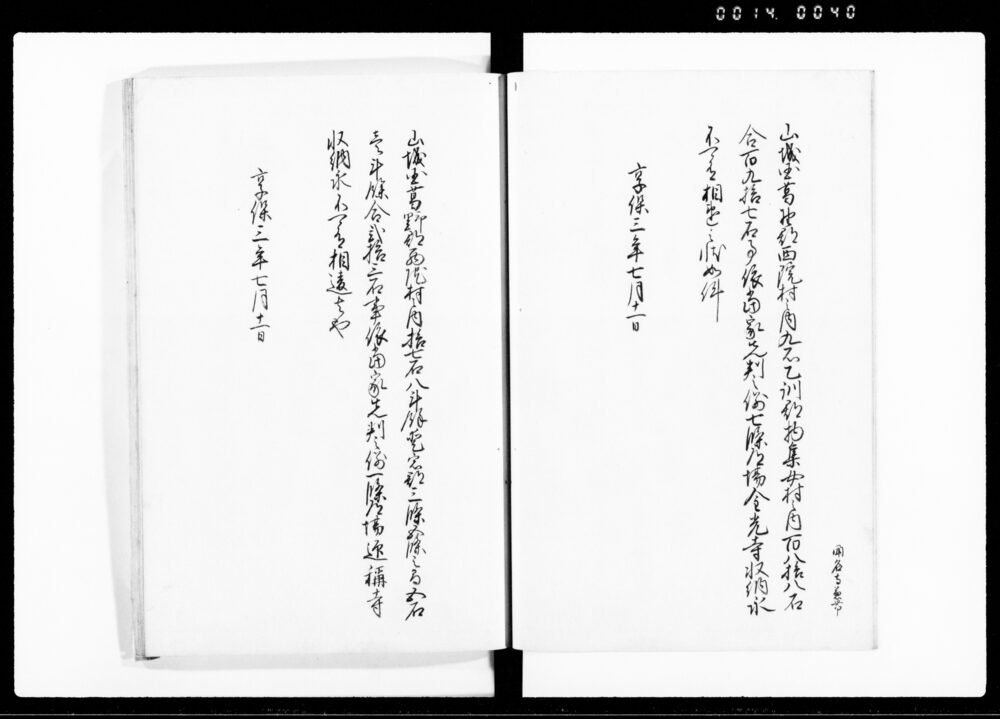 0014. 0040
山城国葛野郡西院村之内九石乙訓郡物集女村之内百八拾八石
合百九拾七石事依当家先判之例七条道場金光寺収納永
不可有相違之状如件
享保三年七月十一日
山城国葛野郡西院村内拾七石八斗餘愛宕郡三条五条之高五石
壱斗餘合弐拾三石事依当家先判之例一条道場迎称寺
収納永不可有相違者也
享保三年七月十一日